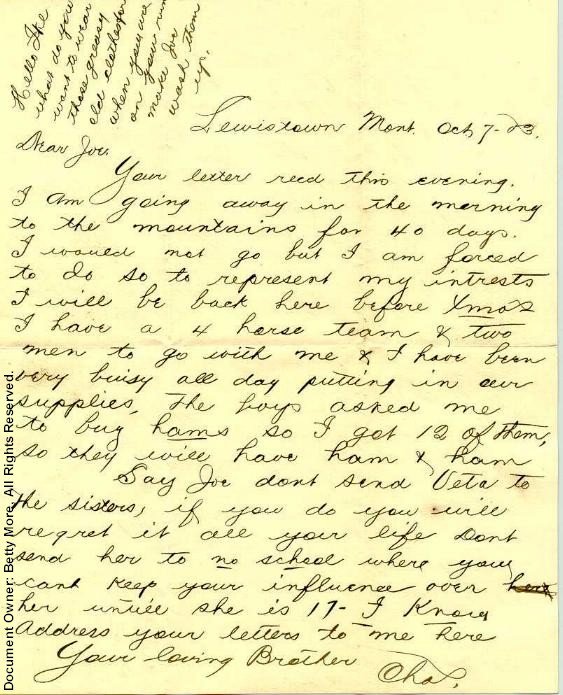 Hello Ike
what do you
want to wear
those greasy
old clothes for
when you are
on your
make Joe
wash them
up.
Lewistown Mont. Oct 7-23.
Dear Joe.
Your letter recd this evening.
I am going away in the morning
to the mountains for 40 days.
I would not go but I am forced
to do so to represent my intrests
I will be back here before Xmas
I have a 4 horse team & two
men to go with me & I have been
very buisy all day putting in our
supplies, The boys asked me
to buy hams so I got 12 of them,
so they will have ham & ham
Say Joe dont send Veta to
the sisters, if you do you will
regret it all your life Dont
send her to no school where you
cant keep your influence over
her untill she is 17- I Know
Address your letters to me here
Your loving Brother
Chas.
Document Owner: Betty More, All Rights Reserved.